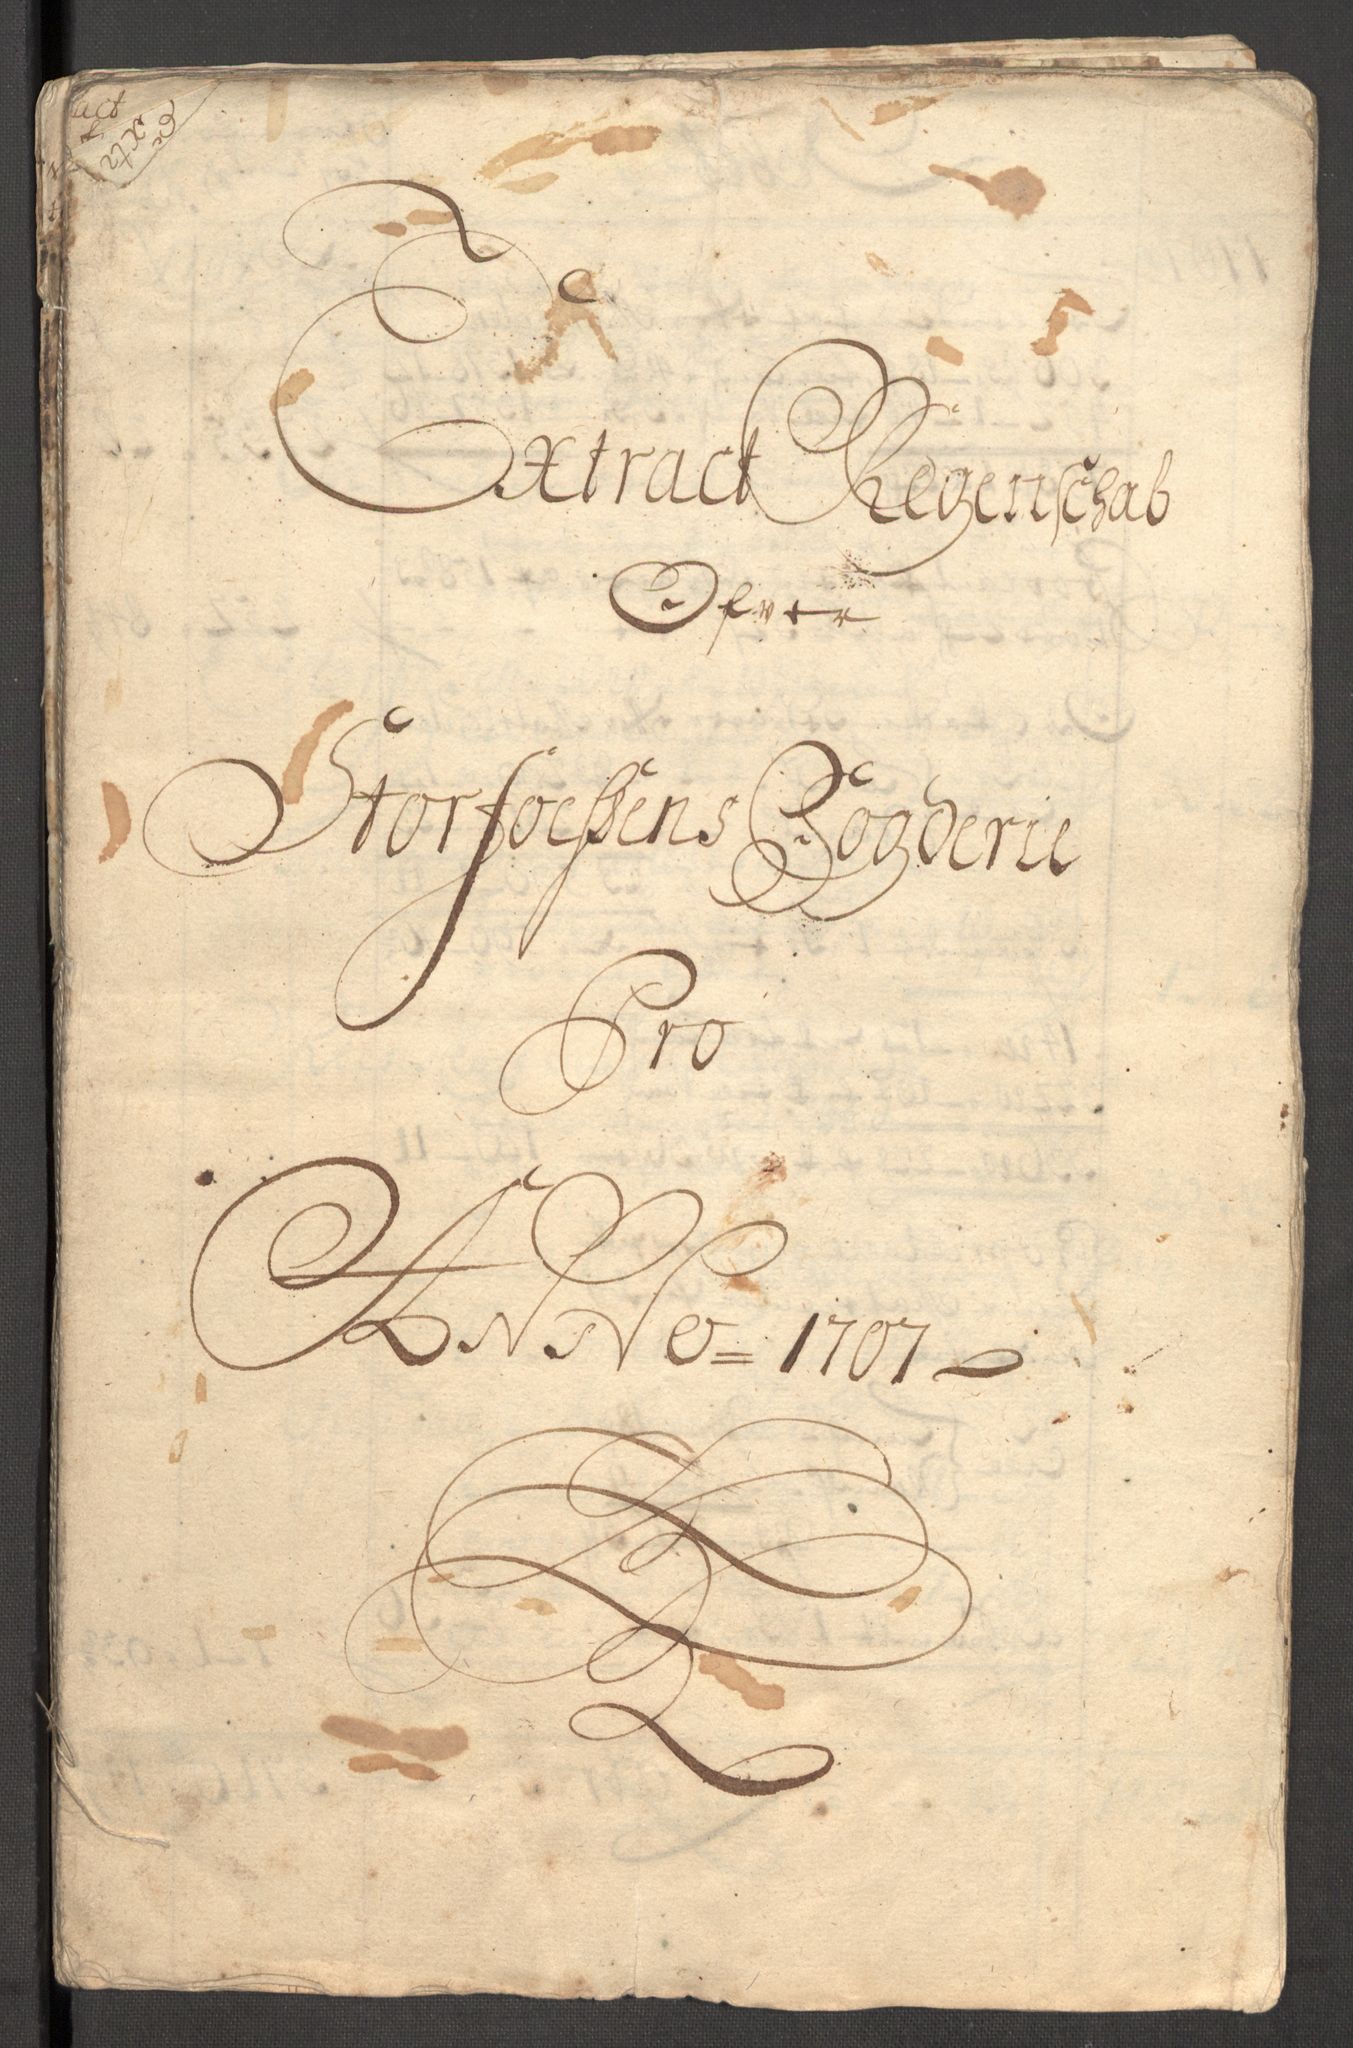 Extract Regenschab
Ofver
Storfoessens Fogderie
Pro
ANNO = 1707